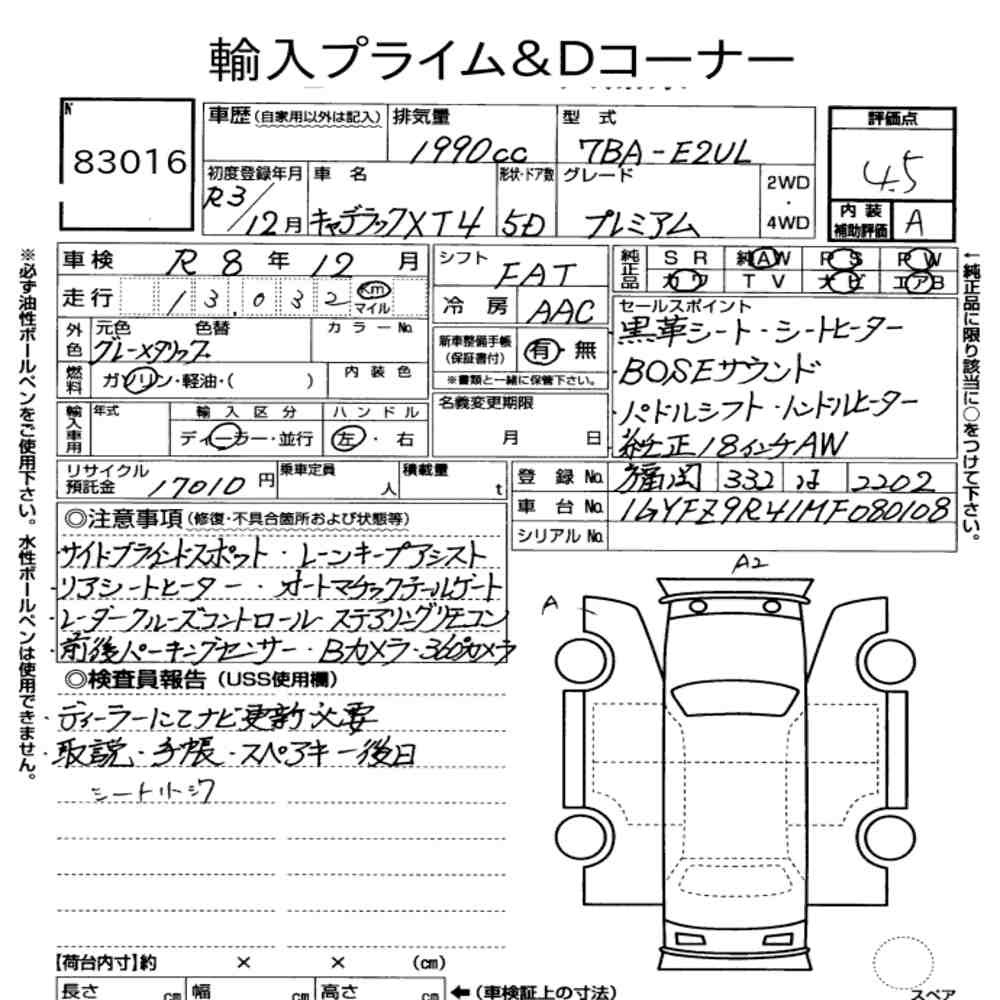 輸入プライム&Dコーナー
№ 83016
車歴(自家用以外は記入) 排気量 1990cc 型式 7BA-E2UL
評価点 4.5
内装補助評価 A
初度登録年月 R3/12月 車名 キャデラックXT4 形状・ドア数 5D グレード プレミアム 2WD・4WD
車検 R8年12月
走行 13,032 Km マイル
シフト FAT
冷房 AAC
純正品 SR 純AW PS PW
カワ TV ナビ エアB
外色 元色 色替 グレーメタリック カラーNo.
燃料 ガソリン・軽油・( ) 内装色
新車整備手帳(保証書付) 有・無
※書類と一緒に保管下さい。
輸入車用 年式 輸入区分 ディーラー・並行 ハンドル 左・右
名義変更期限 月 日
セールスポイント
黒革シート・シートヒーター
・BOSEサウンド
・パドルシフト・ハンドルヒーター
・純正18インチAW
リサイクル預託金 17010円 乗車定員 人 積載量 t
登録No. 福岡 332 は 2202
車台No. 1GYFZ9R41MF080108
シリアルNo.
◎注意事項(修復・不具合箇所および状態等)
・サイドブラインドスポット・レーンキープアシスト
・リアシートヒーター・オートマチックテールゲート
・レーダークルーズコントロール ステアリングリモコン
・前後パーキングセンサー・Bカメラ・360°カメラ
◎検査員報告(USS使用欄)
・ディーラーにてナビ更新必要
・取説・手帳・スペアキー後日
シートリージワ
A2
A
【荷台内寸】約 × × (cm)
長さ cm 幅 cm 高さ cm ←(車検証上の寸法)
スペア
※必ず油性ボールペンをご使用下さい。水性ボールペンは使用できません。
←純正品に限り該当に○をつけて下さい。